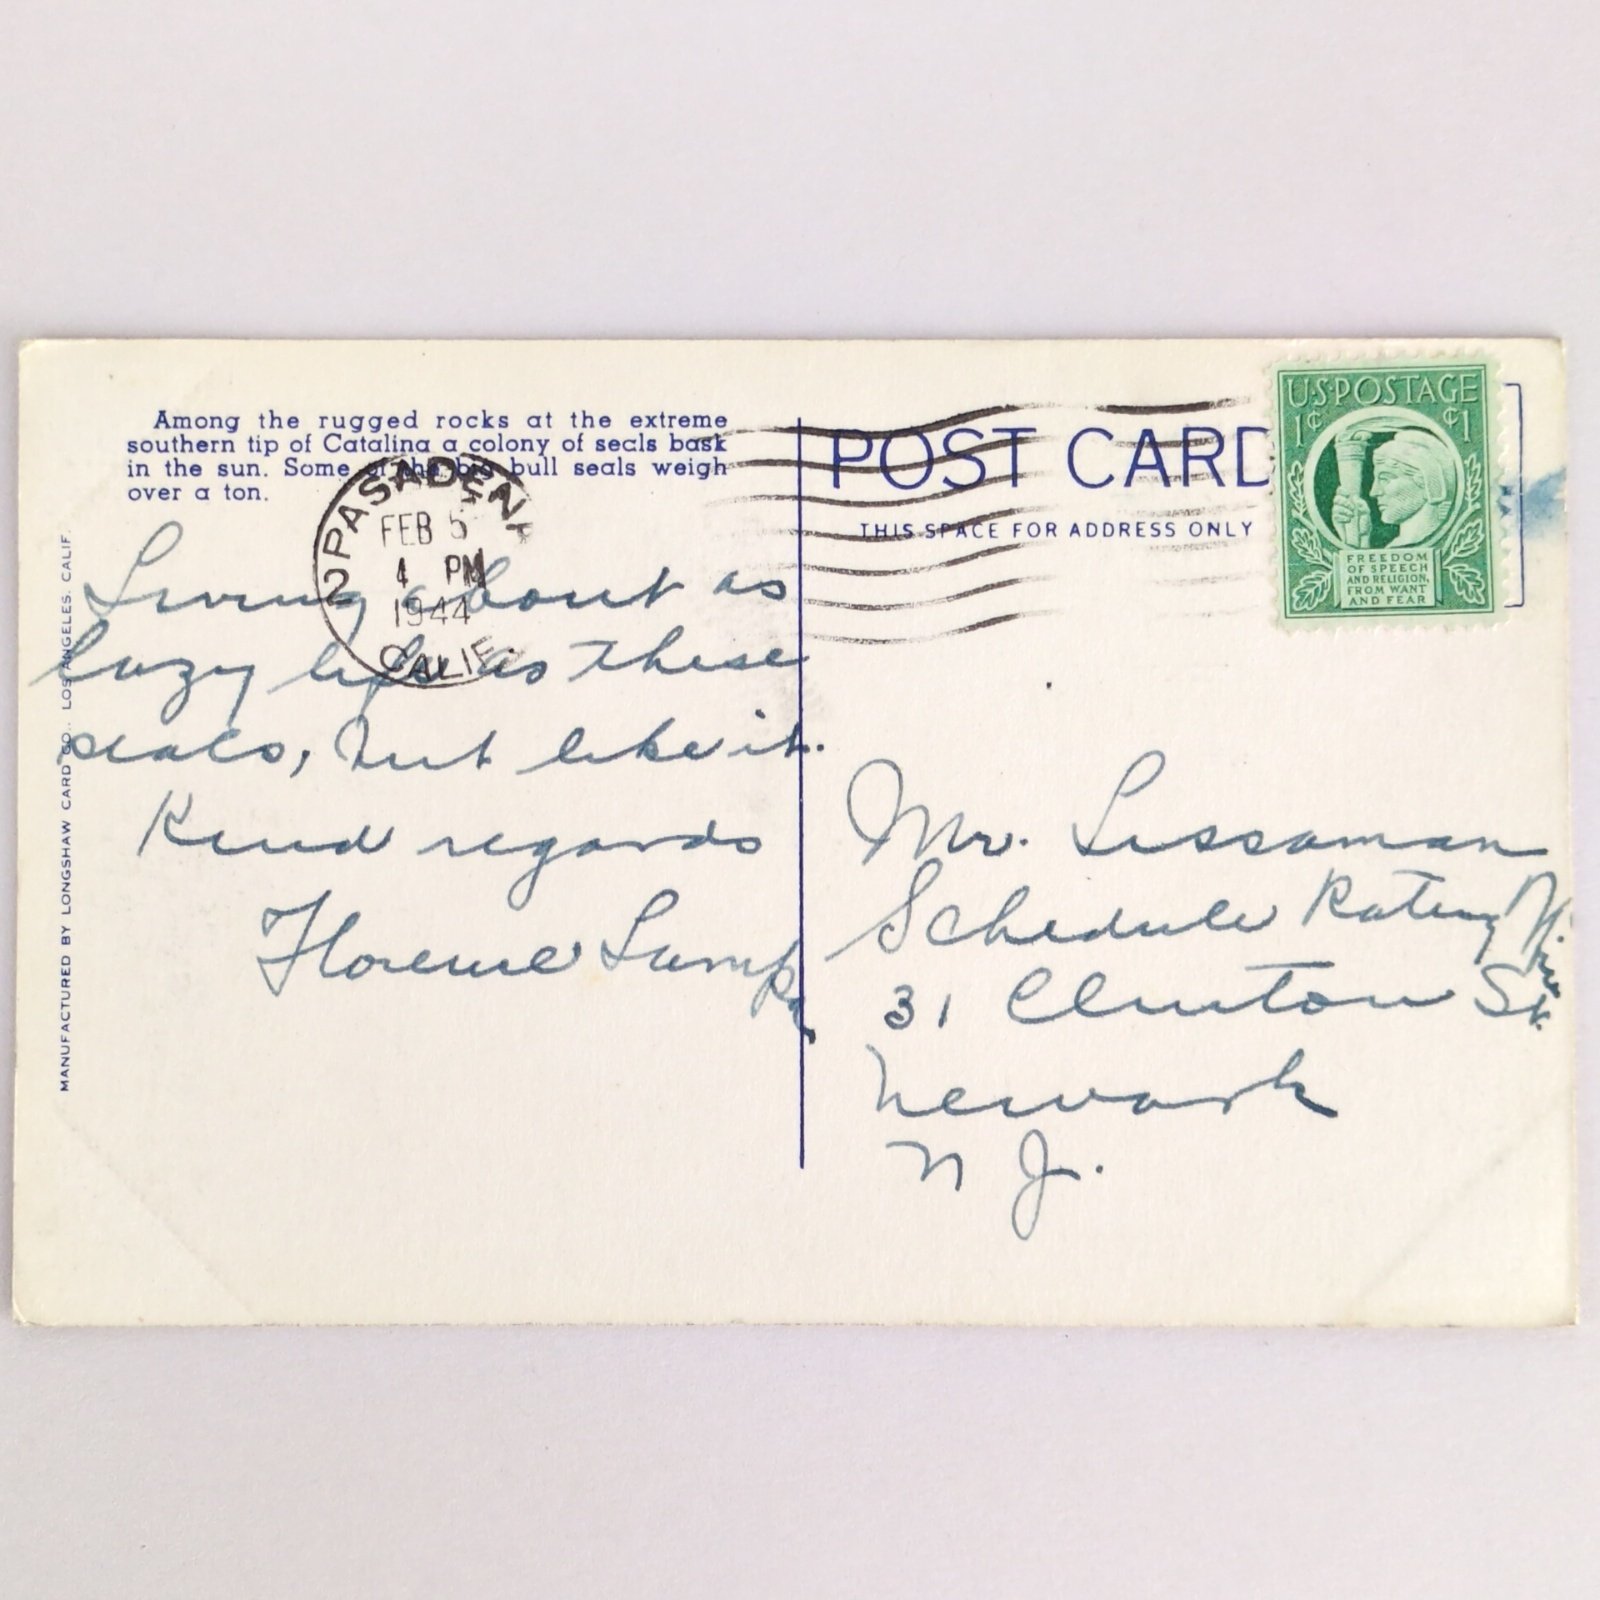 Among the rugged rocks at the extreme
southern tip of Catalina a colony of seals bask
in the sun. Some of the big bull seals weigh
over a ton.
PASADENA
2
FEB 5
4 PM
1944
CALIF.
Living about as
lazy life as these
seals, but like it.
Kind regards
Florence Lampe
MANUFACTURED BY LONGSHAW CARD CO., LOS ANGELES, CALIF.
POST CARD
THIS SPACE FOR ADDRESS ONLY
U.S. POSTAGE
1¢ ¢1
FREEDOM
OF SPEECH
AND RELIGION,
FROM WANT
AND FEAR
Mr. Lissaman
Schedule Rating
31 Clinton St.
Newark
N J.